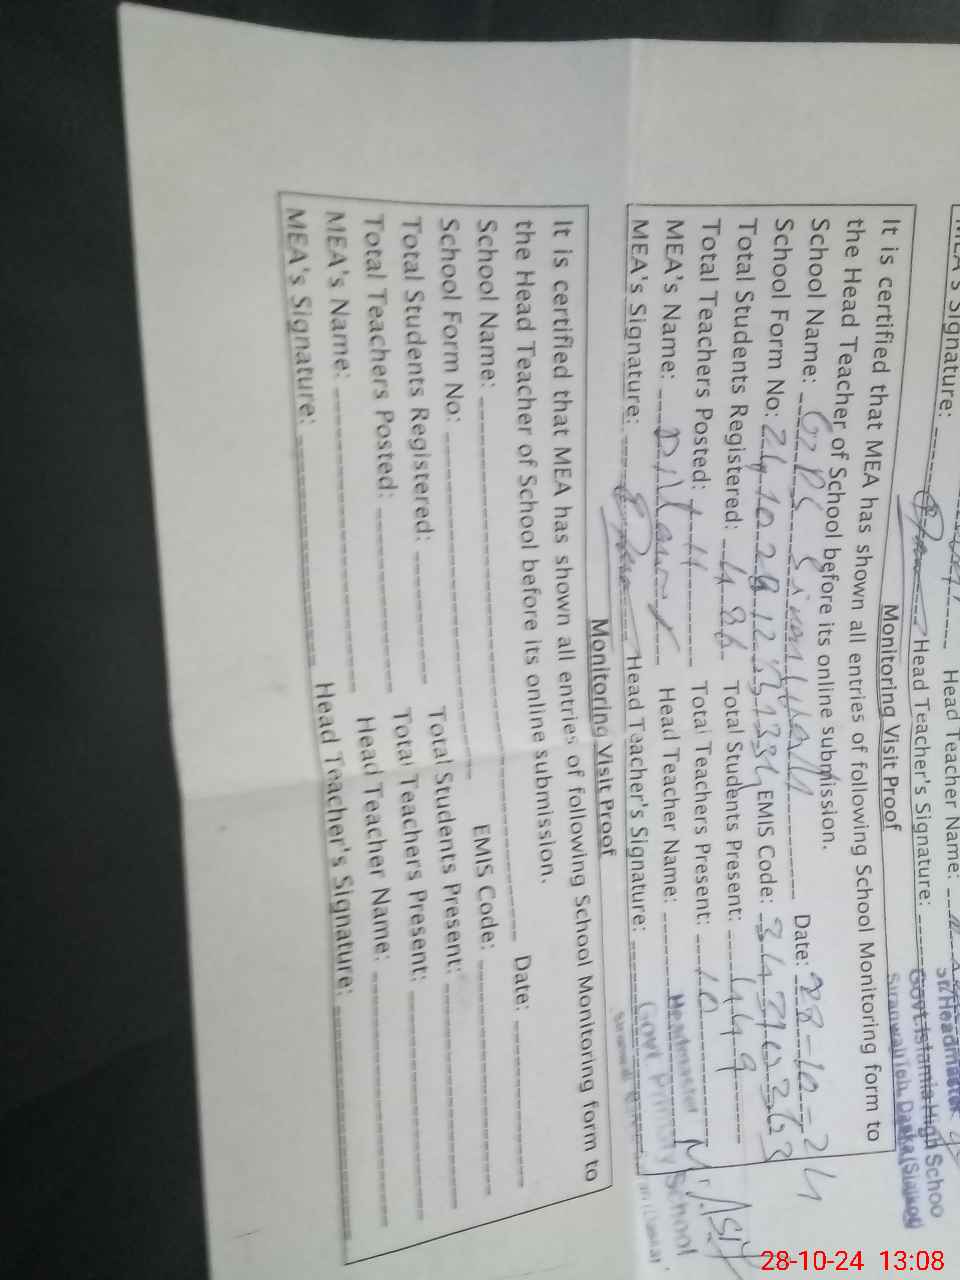 MEA's Signature: Head Teacher Name:
Head Teacher's Signature:
Sr. Headmaster
Govt. Islamia High Schoo
Siranwali Teh. Daska (Sialkot)
Monitoring Visit Proof
It is certified that MEA has shown all entries of following School Monitoring form to
the Head Teacher of School before its online submission.
School Name: GPS Date: 28-10-24
School Form No: EMIS Code:
Total Students Registered: 486 Total Students Present: 449
Total Teachers Posted: 11 Total Teachers Present: 10
MEA's Name: Head Teacher Name: M. ASif
MEA's Signature: Head Teacher's Signature:
Headmaster
Govt. Primary School
Monitoring Visit Proof
It is certified that MEA has shown all entries of following School Monitoring form to
the Head Teacher of School before its online submission.
School Name: Date:
School Form No: EMIS Code:
Total Students Registered: Total Students Present:
Total Teachers Posted: Total Teachers Present:
MEA's Name: Head Teacher Name:
MEA's Signature: Head Teacher's Signature:
28-10-24 13:08